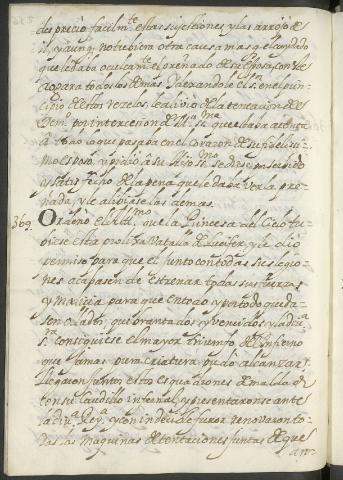 desprecio facilmte. estas sugestiones y las arrojo de
si, y aunq. no tubiera otra causa mas q. el cuydado
que le daba ocultamte. el preñado de su esposa, con el
cio para todos los demas. y dexandole el Sr. en el prin-
cipio de estos rezelos, le aliuio de la tentacion del
Demo. por intercesion de Ma. Sma. que estaba atenta
a todo lo que pasaba en el corazon de su fidelisi-
mo esposo, y pidio a su hijo Smo. se diese por servido
y satisfecho de la pena que le daba verla pre-
ñada, y le aliuiase las demas.
369. Ordeno el Altmo. que la Princesa del Cielo tu-
biese esta prolixa batalla de Lucifer, y le dio
permiso para que el junto con todas sus legio-
nes acabasen de estrenar todas sus fuerzas
y malicia para que en todo y por todo queda-
sen ollados, quebrantados y vencidos, y la diua.
Sra. consiguiese el mayor triumfo del infierno
que jamas pura criatura pudo alcanzar.
Llegaron juntos estos esquadrones de maldad
con su caudillo infernal, y presentaronse ante
la diua. Reya. y con indecible furor renovaron to-
das las maquinas de tentaciones juntas de que
an-